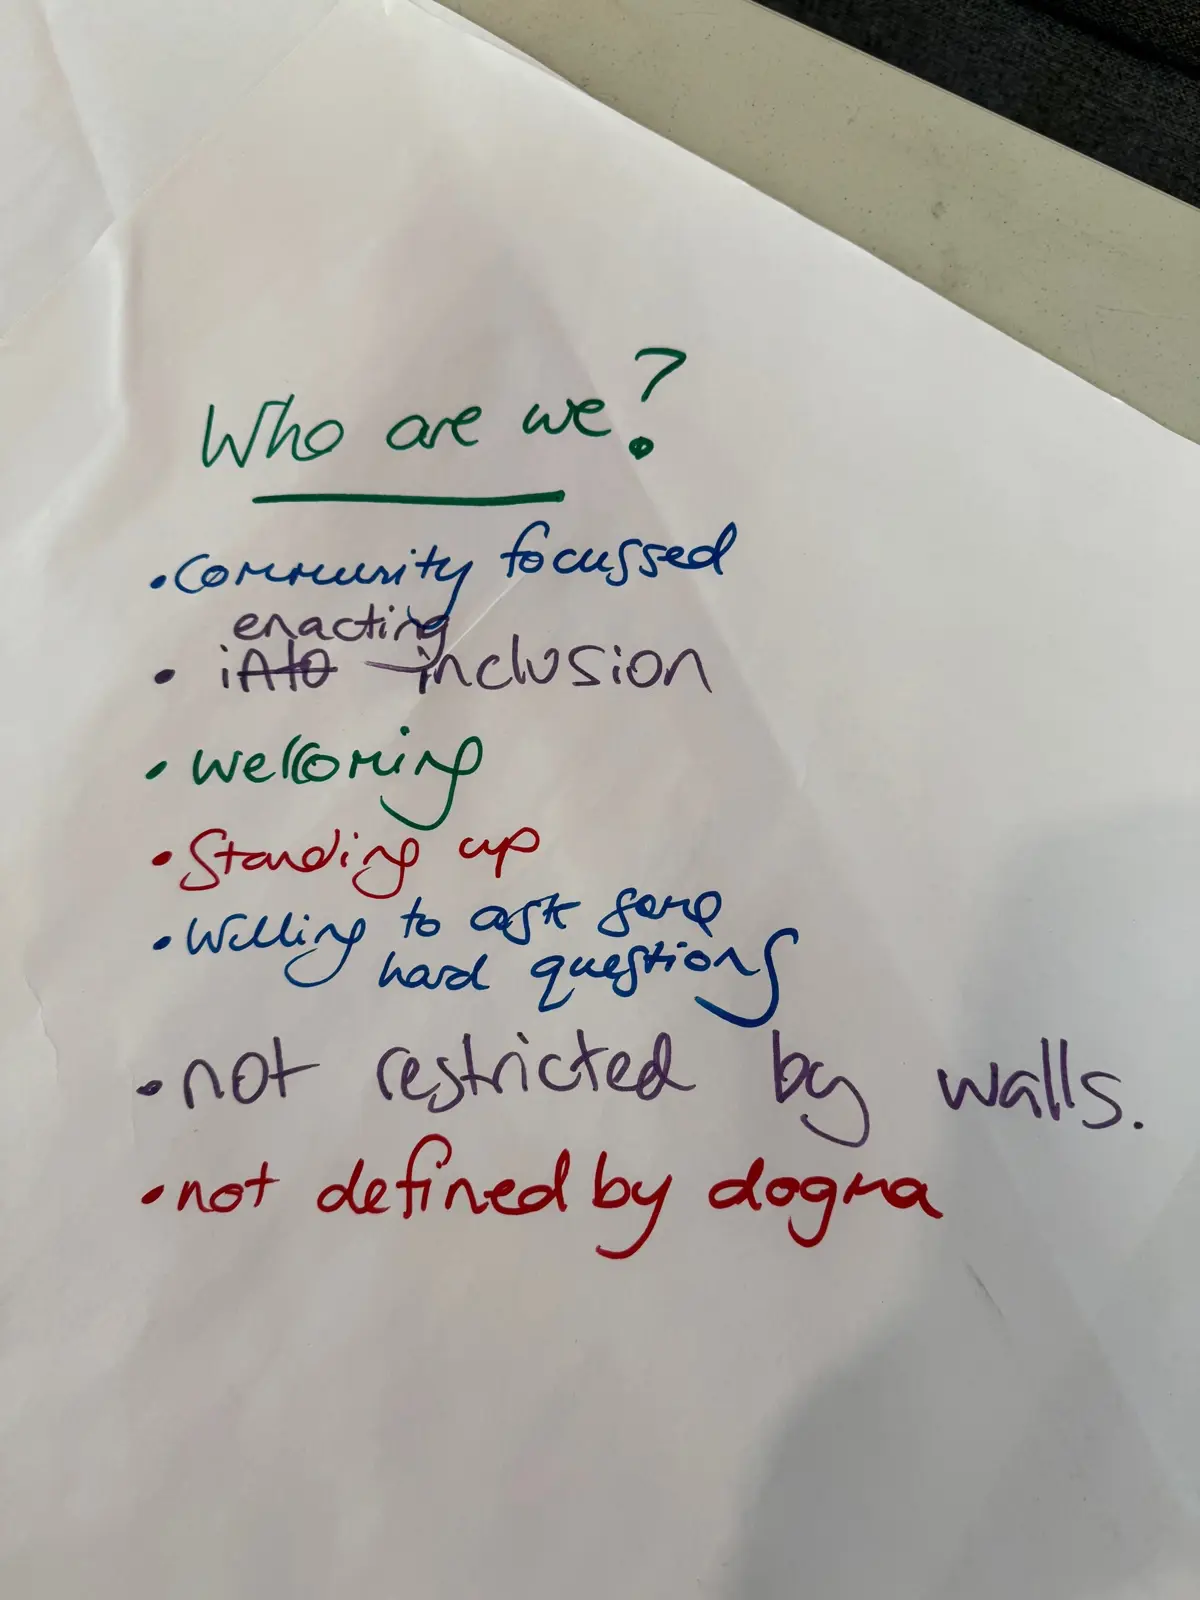 Who are we?
• Community focussed
enacting
• into inclusion
• Welcoming
• Standing up
• Willing to ask some
hard questions
• not restricted by walls.
• not defined by dogma